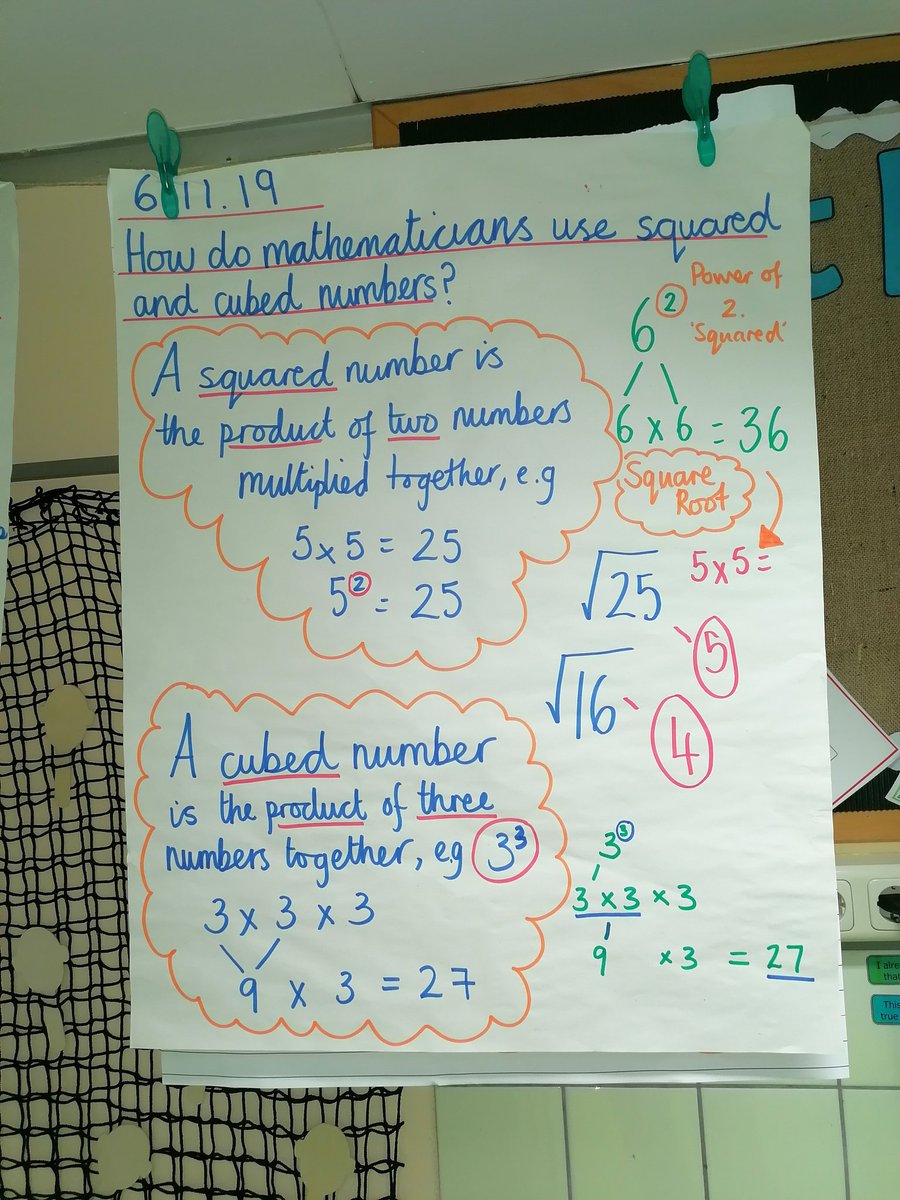 6.11.19
How do mathematicians use squared
and cubed numbers?
A squared number is
the product of two numbers
multiplied together, e.g
5 x 5 = 25
5² = 25
6² Power of
2.
'Squared'
6 x 6 = 36
Square
Root
√25 5x5=
5
√16
4
A cubed number
is the product of three
numbers together, e.g 3³
3 x 3 x 3
9 x 3 = 27
3³
3 x 3 x 3
9 x 3 = 27
This
true